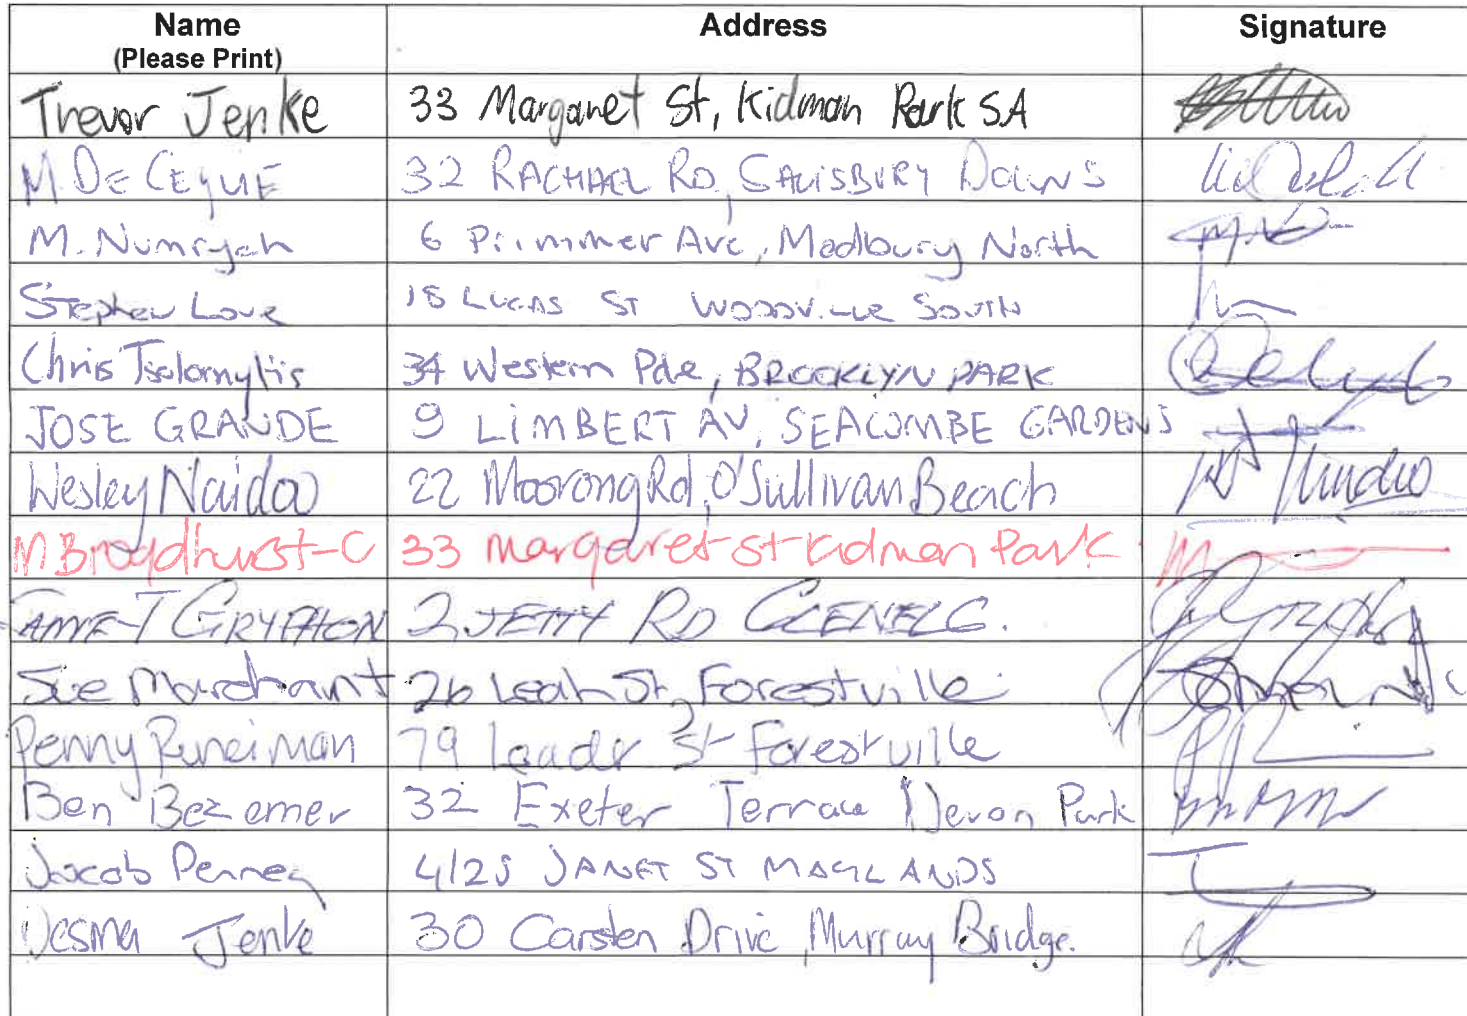 Name Address Signature
(Please Print)
Trevor Jenke 33 Margaret St, Kidman Park SA
M. DE CEGLIE 32 RACHAEL RD, SALISBURY DOWNS
M. Numrych 6 Primmer Ave, Modbury North
Stephen Love 15 LUCAS ST WOODVILLE SOUTH
Chris 34 Western Pde, BROOKLYN PARK
JOSE GRANDE 9 LIMBERT AV, SEACOMBE GARDENS
Wesley Naidoo 22 Moorong Rd, O'Sullivan Beach
M Broadhurst-C 33 margaret st kidman Park
GRYPHON 2 JETTY RD GLENELG.
Sue Marchant 26 Leah St, Forestville
Penny Runciman 79 Leader St Forestville
Ben Bezemer 32 Exeter Terrace Devon Park
Jacob Penney 4/25 JANET ST MAYLANDS
Desma Jenke 30 Carsten Drive, Murray Bridge.